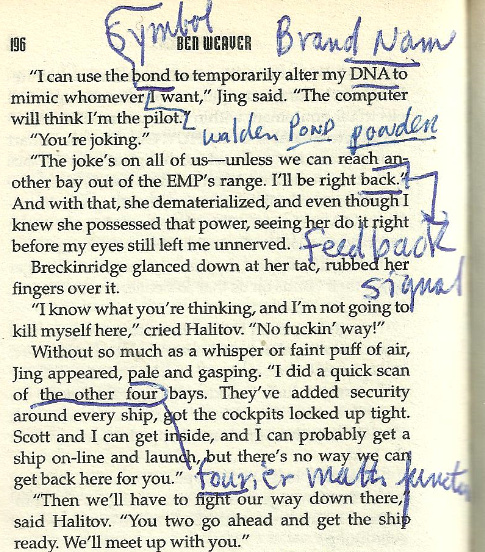 Symbol
196 BEN WEAVER Brand Nam
“I can use the bond to temporarily alter my DNA to
mimic whomever I want,” Jing said. “The computer
will think I’m the pilot.”
walden POND powders
“You’re joking.”
“The joke’s on all of us—unless we can reach an-
other bay out of the EMP’s range. I’ll be right back.”
And with that, she dematerialized, and even though I
knew she possessed that power, seeing her do it right
before my eyes still left me unnerved.
Feedback
signal
Breckinridge glanced down at her tac, rubbed her
fingers over it.
“I know what you’re thinking, and I’m not going to
kill myself here,” cried Halitov. “No fuckin’ way!”
Without so much as a whisper or faint puff of air,
Jing appeared, pale and gasping. “I did a quick scan
of the other four bays. They’ve added security
around every ship, got the cockpits locked up tight.
Scott and I can get inside, and I can probably get a
ship on-line and launch, but there’s no way we can
get back here for you.”
fourier math functio
“Then we’ll have to fight our way down there,”
said Halitov. “You two go ahead and get the ship
ready. We’ll meet up with you.”